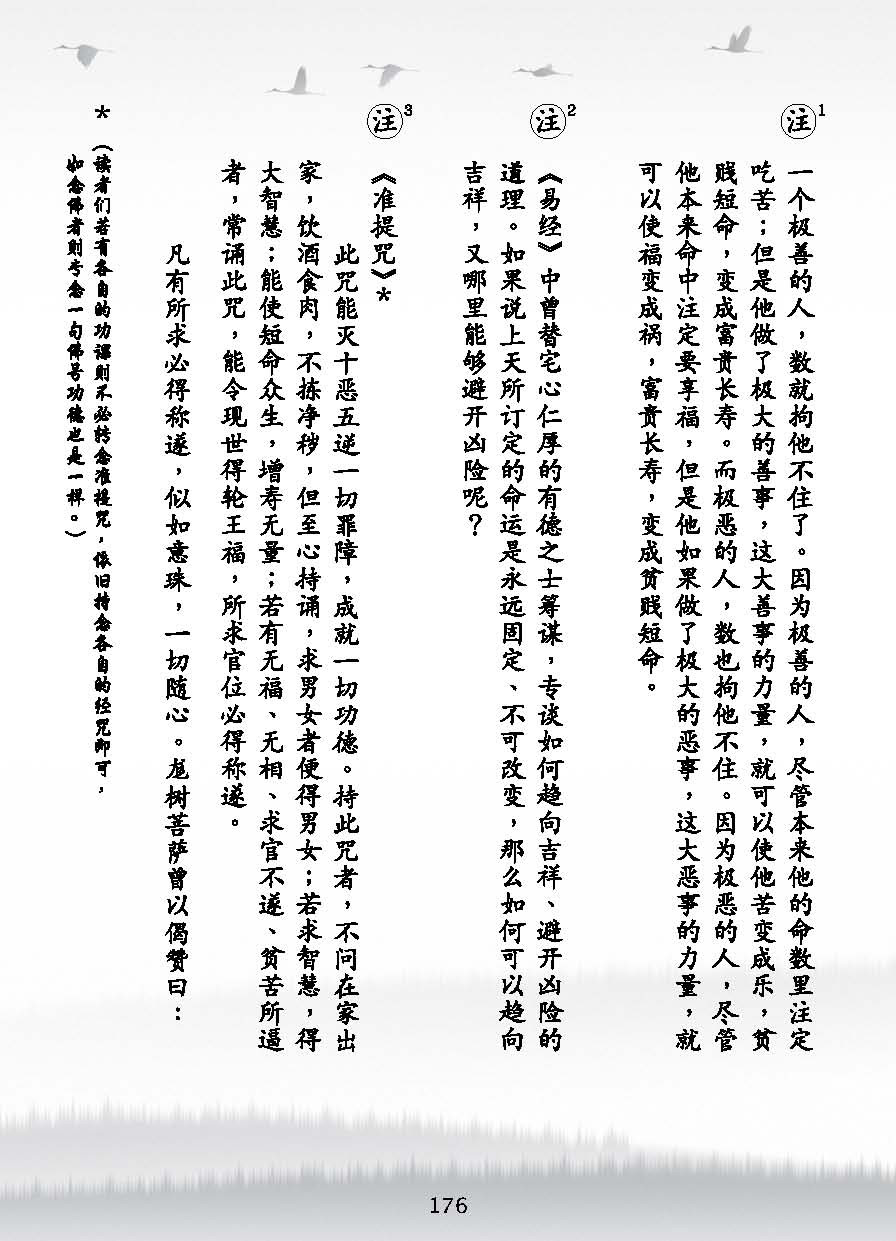 注1
一个极善的人，数就拘他不住了。因为极善的人，尽管本来他的命数里注定
吃苦；但是他做了极大的善事，这大善事的力量，就可以使他苦变成乐，贫
贱短命，变成富贵长寿。而极恶的人，数也拘他不住。因为极恶的人，尽管
他本来命中注定要享福，但是他如果做了极大的恶事，这大恶事的力量，就
可以使福变成祸，富贵长寿，变成贫贱短命。
注2
《易经》中曾替宅心仁厚的有德之士筹谋，专谈如何趋向吉祥、避开凶险的
道理。如果说上天所订定的命运是永远固定、不可改变，那么如何可以趋向
吉祥，又哪里能够避开凶险呢？
注3
《准提咒》*
此咒能灭十恶五逆一切罪障，成就一切功德。持此咒者，不问在家出
家，饮酒食肉，不拣净秽，但至心持诵，求男女者便得男女；若求智慧，得
大智慧；能使短命众生，增寿无量；若有无福、无相、求官不遂、贫苦所逼
者，常诵此咒，能令现世得轮王福，所求官位必得称遂。
凡有所求必得称遂，似如意珠，一切随心。龙树菩萨曾以偈赞曰：
*（读者们若有各自的功课则不必转念准提咒，依旧持念各自的经咒即可，
如念佛者则专念一句佛号功德也是一样。）
176